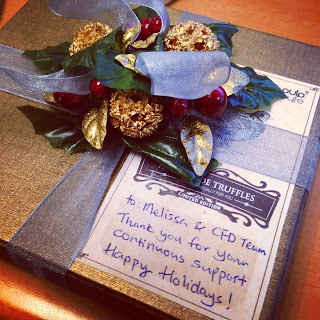 DE TRUFFLES
LIMITED EDITION
to: Melissa & CFD Team
Thank you for your
continuous support
Happy Holidays!